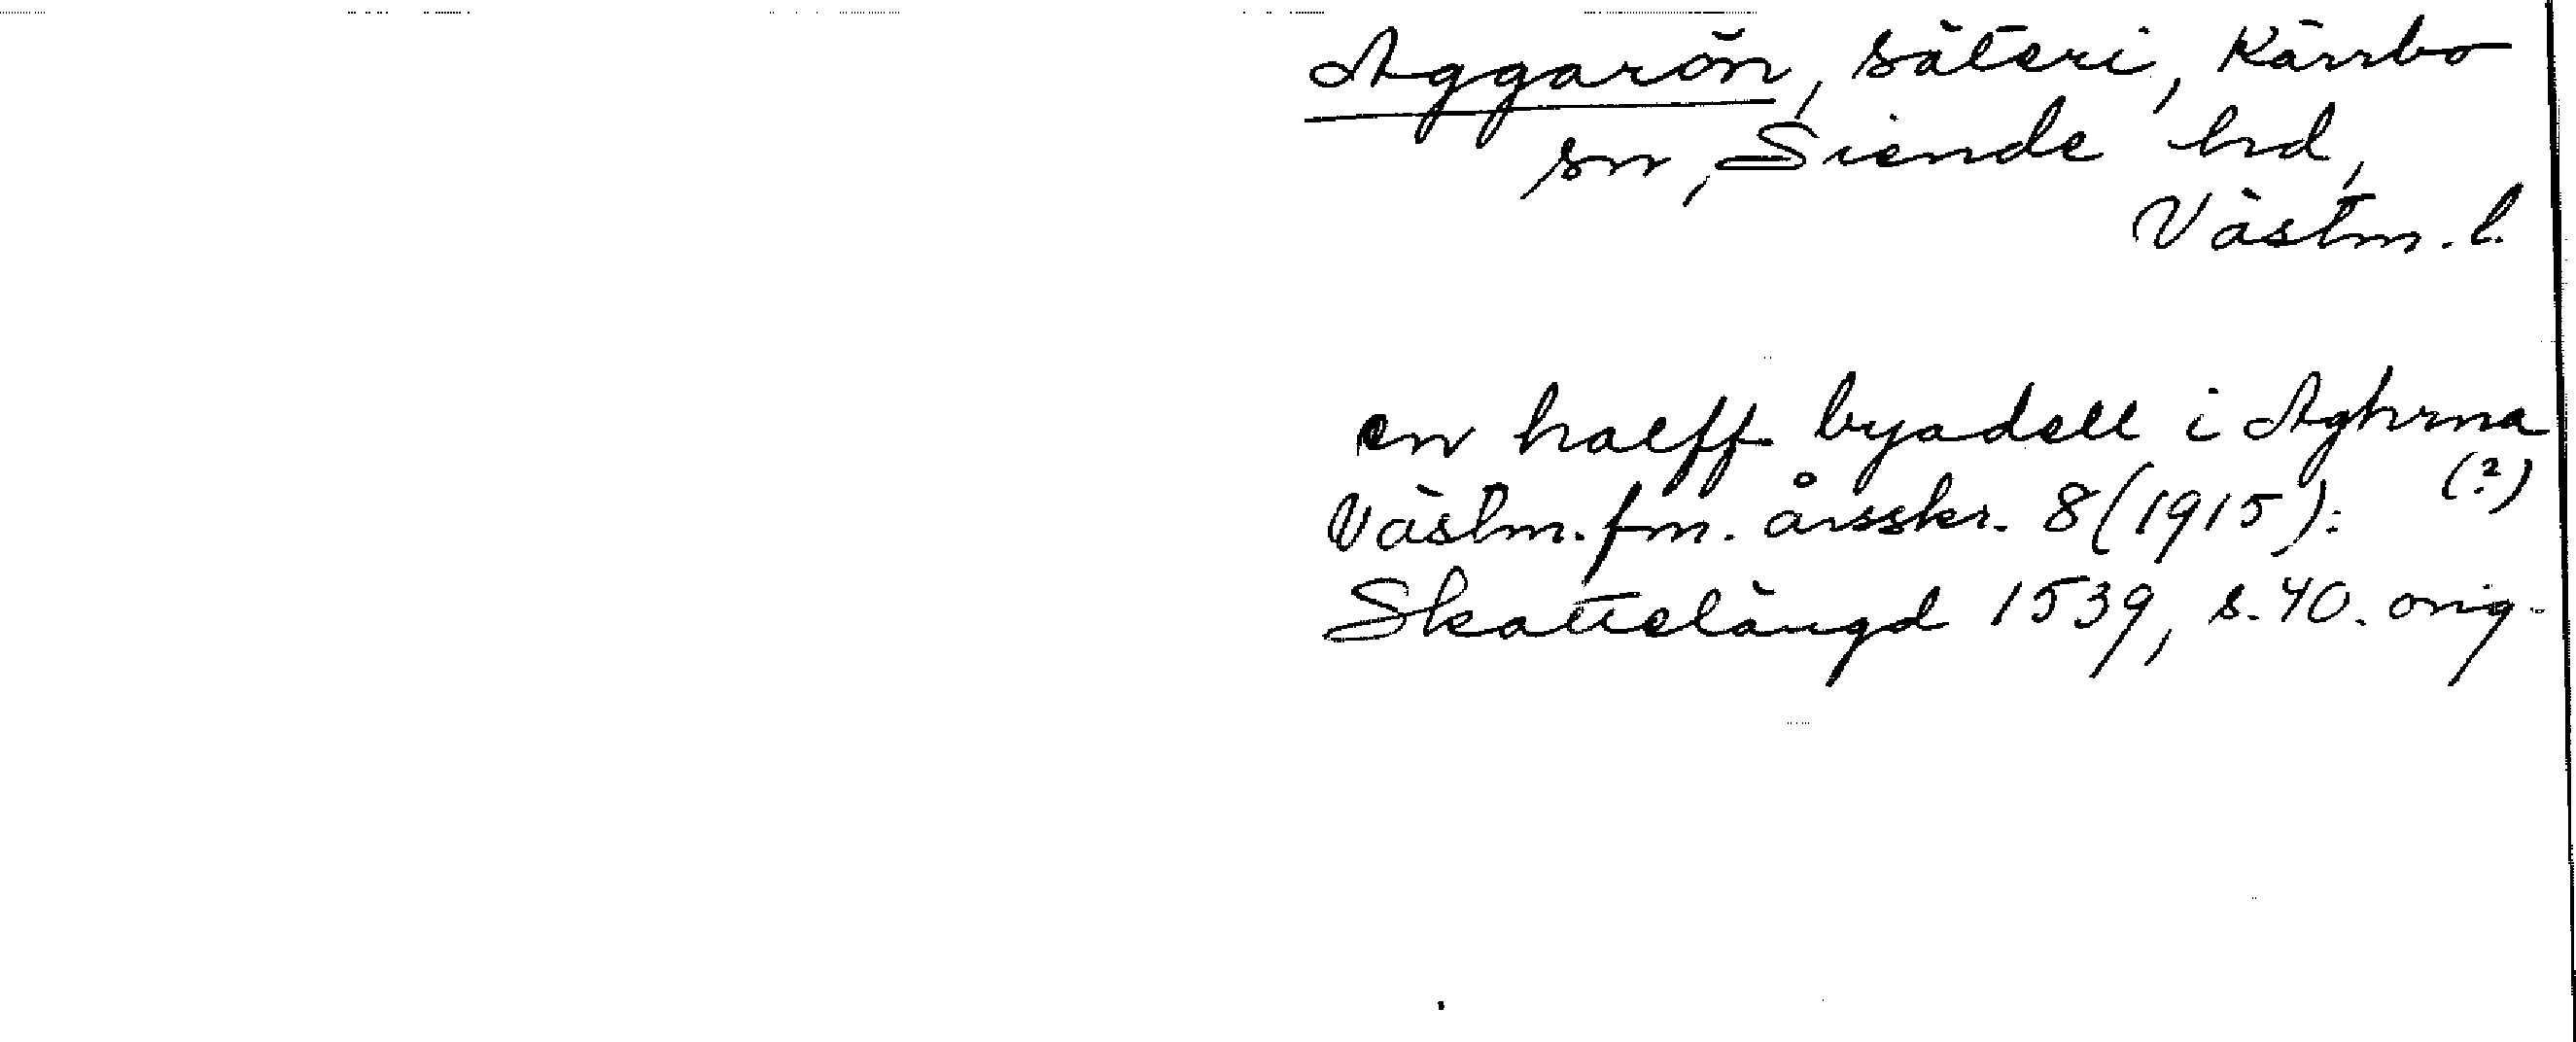 Aggarön, säteri, Kärrbo
sn, Siende hd,
Västm. l.
en halff byadell i Aghrna
(?)
Västm. fm. årsskr. 8 (1915):
Skattelängd 1539, s. 40. orig.